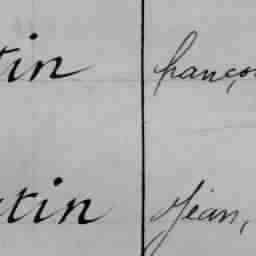 tin franço
tin Jean,